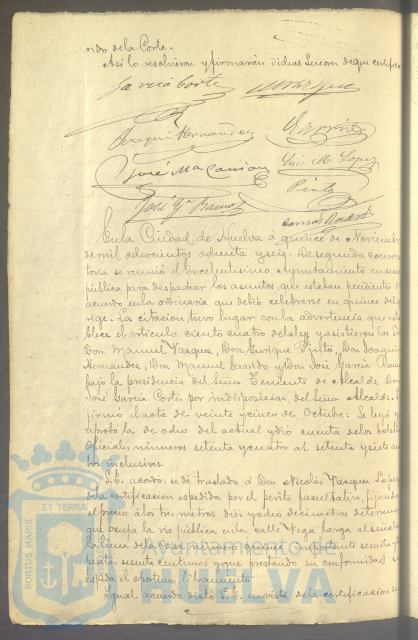 rido de la Corte.
Asi lo resolvieron y firmarán dichos Señores de que certifico
Garcia Corte
Joaqui Hernandez
José Mª Garrion
Luis M. Lopez
Pinto
José Gª Ramos
En la Ciudad de Huelva á quince de Noviembre
de mil ochocientos ochenta y seis. De segunda convoca
toria se reunió el Excelentisimo Ayuntamiento en sesion
pública para despachar los asuntos que estaban pendientes de
acuerdo en la ordinaria que debió celebrarse en quince del
rige. La citacion tuvo lugar con la advertencia que esta
blece el articulo ciento cuatro de la ley y asistieron los Sres
Don Manuel Vazquez, Don Enrique Pinto, Don Joaquin
Hernandez, Don Manuel Garrido y Don José Garcia Ramos
bajo la presidencia del Señor Teniente de Alcalde Don
José Garcia Corte, por indisposicion del Señor Alcalde. Se
firmó el acta de veinte y cinco de Octubre. Se leyó y
aprobó la de ocho del actual y dió cuenta de los Boletines
Oficiales, números setenta y cuatro al setenta y siete am
bos inclusives.
S.E. acordó: se dé traslado á Don Nicolás Vazquez Lopez
de la certificacion espedida por el perito facultativo, fijando
el precio á los tres metros diez y ocho decimetros de terreno
que ocupa la via pública en la calle Vega larga al señalar
la linea de la Casa número quince, importante sesenta y
pesetas sesenta centimos y que prestando su conformidad se
espida el oportuno libramiento.
Igual acuerdo dictó S.E. en vista de la certificacion
PORTUS MARIS
ET TERRAE
Ayuntamiento de
HUELVA